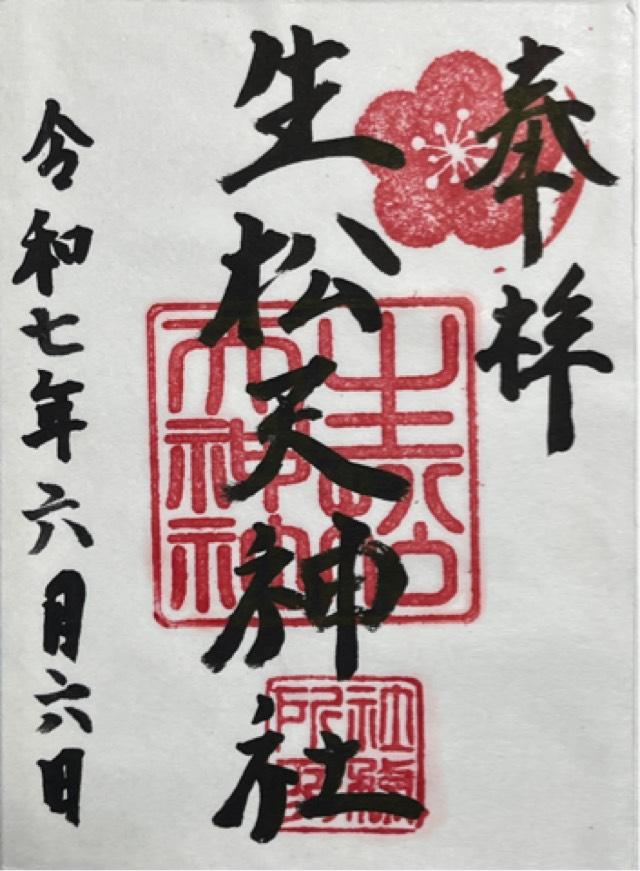 奉拝
生松天神社
令和七年六月六日
生松天神社
社務所印